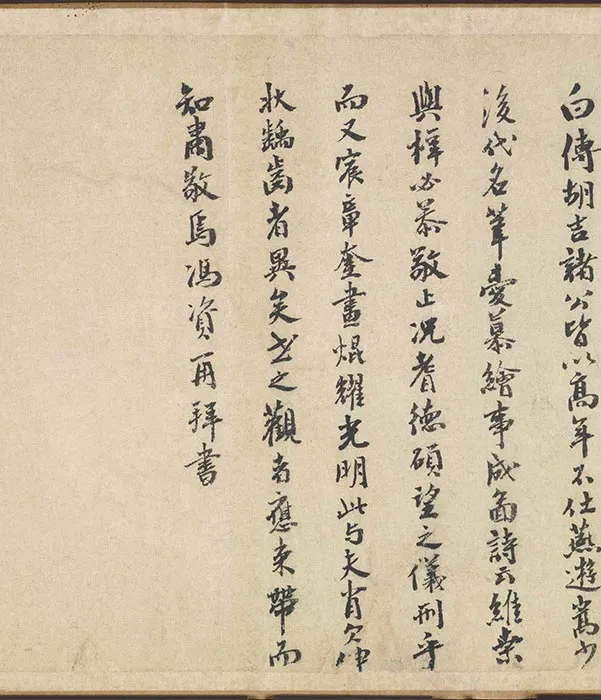 白傅胡吉諸公皆以高年不仕燕遊嵩少
後代名筆愛慕繪事成啚詩云維桑
與梓必恭敬止况耆德碩望之儀刑乎
而又宸章奎畫焜耀光明此与夫肖欠伸
狀齲齒者異矣世之觀者應束帶而
知肅敬焉馮資再拜書